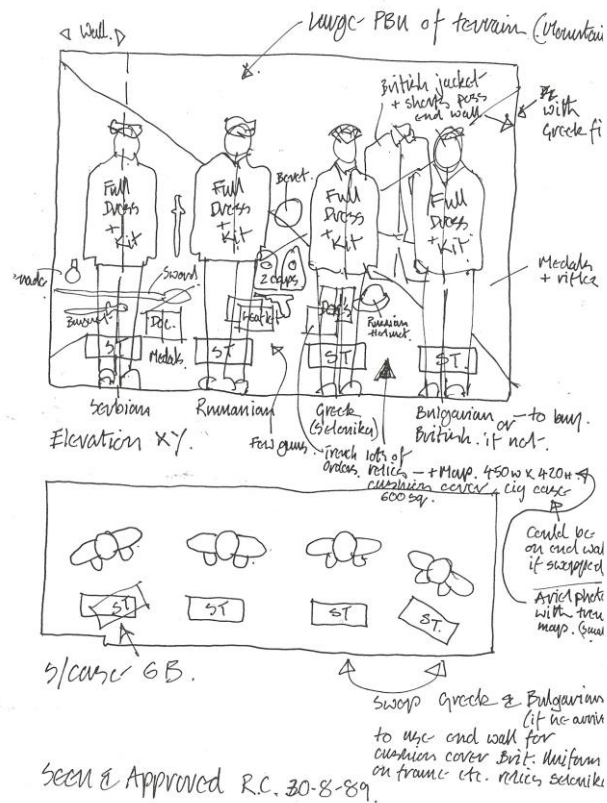 Wall.
Large PBU of terrain (Mountain
British jacket
+ shorts poss
end wall
with
Greek fi
Full
Dress
+ Kit
Full
Dress
+ Kit
Beret.
Full
Dress
+ Kit
Full
Dress
+ Kit
Sword
2 caps
Medals
+ rifles
Bayonet
Doc.
Medals.
Leaflet
Docs
Russian
Helmet.
S.
ST
ST
ST.
Serbian
Rumanian
Greek
(Salonika)
Bulgarian or - to buy.
British. if not.
Elevation XY.
Few guns.
Track lots of
orders. relics - + Map. 450w x 420H
cushion cover, cig case
600 sq.
Could be
on end wal
if swapped
Ariel photo
with tren
map.
ST
ST
ST
ST.
S/case GB.
Swap Greek & Bulgarian
(if he arriv
to use end wall for
cushion cover Brit. Uniform
on frame etc. relics Salonika
Seen & Approved R.C. 30-8-89.